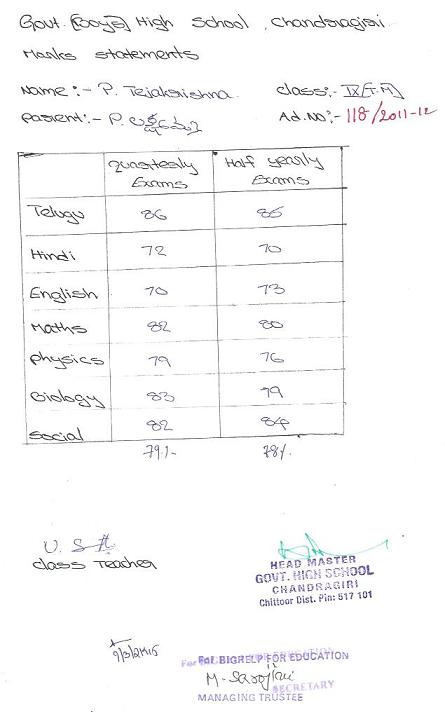 Govt. [Boys] High School, Chandragiri.
Marks statements
Name :- P. Tejakrishna. class:- IX(T.M)
Parient:- P. లక్ష్మమ్మ Ad.No:- 118/2011-12
Quarterly Exams Half yearly Exams
Telugu 86 85
Hindi 72 70
English 70 73
Maths 82 80
Physics 79 76
Biology 83 79
Social 82 84
79% 78%
Class Teacher
HEAD MASTER
GOVT. HIGH SCHOOL
CHANDRAGIRI
Chittoor Dist. Pin: 517 101
For BIGRELP FOR EDUCATION
M. Sarojini
SECRETARY
MANAGING TRUSTEE